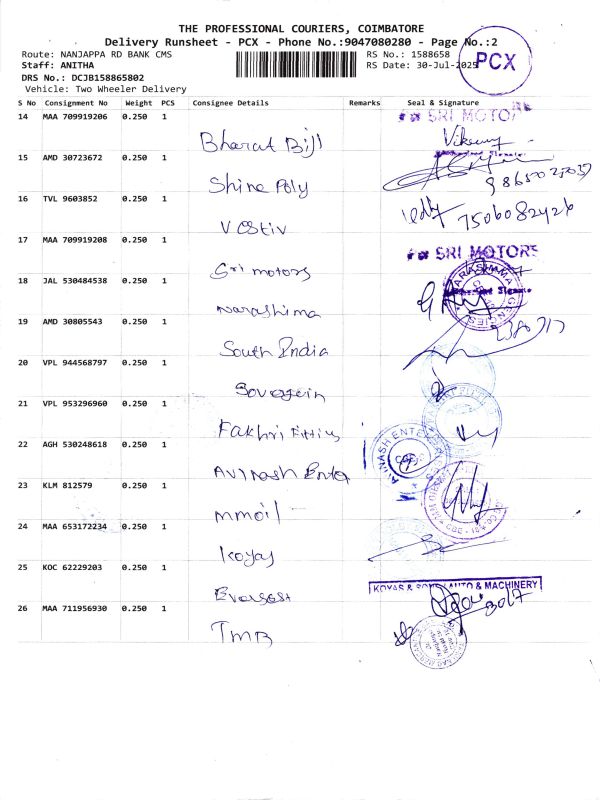 THE PROFESSIONAL COURIERS, COIMBATORE
Delivery Runsheet - PCX - Phone No.:9047080280 - Page No.:2
PCX
Route: NANJAPPA RD BANK CMS
RS No.: 1588658
Staff: ANITHA
RS Date: 30-Jul-2025
DRS No.: DCJB158865802
Vehicle: Two Wheeler Delivery
S No Consignment No Weight PCS Consignee Details Remarks Seal & Signature
14 MAA 709919206 0.250 1
SRI MOTOR
Bharat Bijl
15 AMD 30723672 0.250 1
Shine Poly
16 TVL 9603852 0.250 1
7506082426
V Estiv
17 MAA 709919208 0.250 1
For SRI MOTORS
Sri motors
18 JAL 530484538 0.250 1
Narashima
19 AMD 30805543 0.250 1
South India
20 VPL 944568797 0.250 1
Sovereign
21 VPL 953296960 0.250 1
Fakhri Fitting
22 AGH 530248618 0.250 1
AVINASH ENTER
Avinash Enter
23 KLM 812579 0.250 1
mmoil
24 MAA 653172234 0.250 1
Koyas
25 KOC 62229203 0.250 1
KOYAS & SONS AUTO & MACHINERY
Everest
26 MAA 711956930 0.250 1
TMB